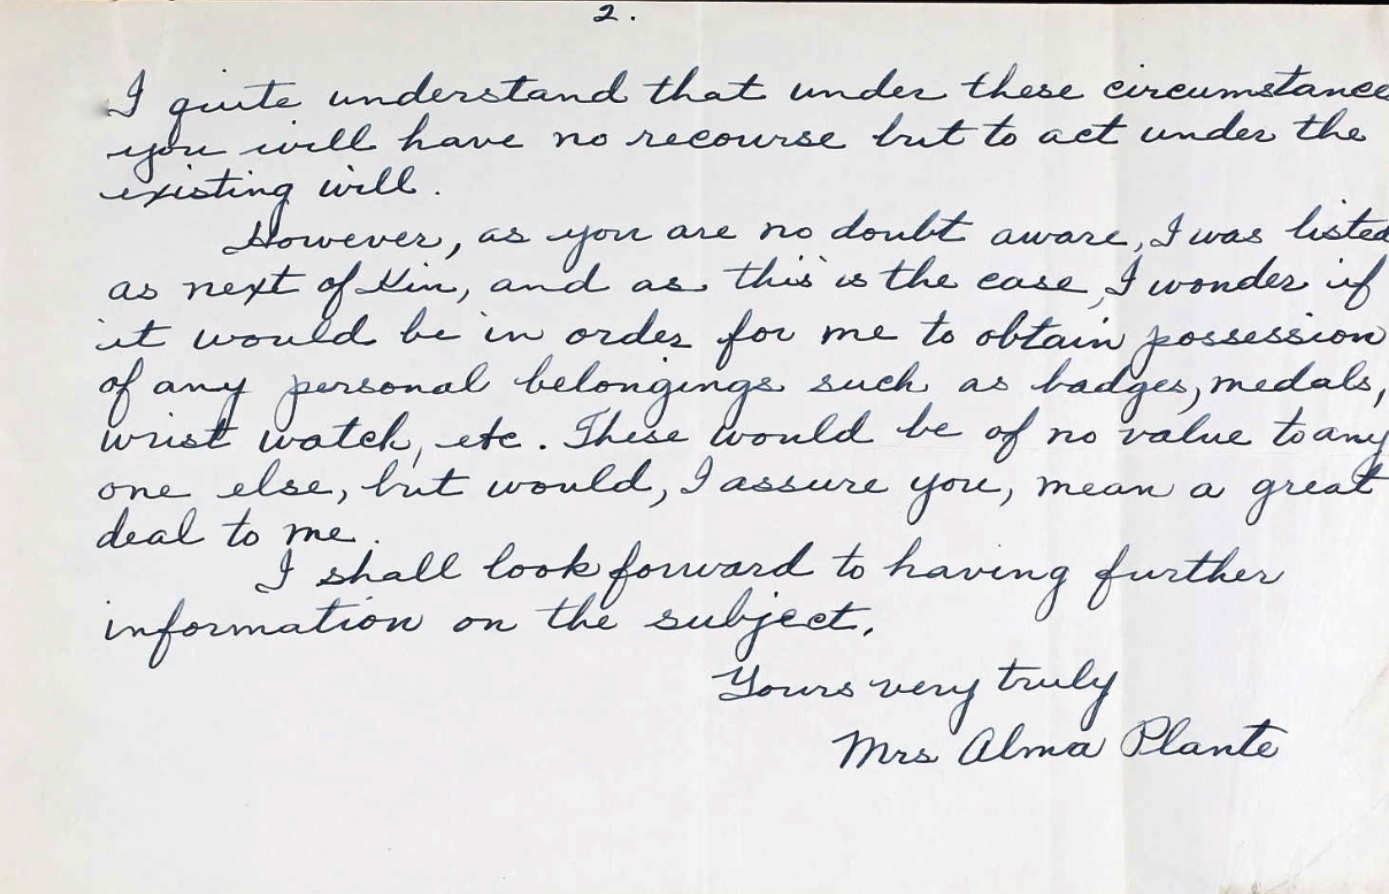 2.
I quite understand that under these circumstance
you will have no recourse but to act under the
existing will.
However, as you are no doubt aware, I was listed
as next of Kin, and as this is the case, I wonder if
it would be in order for me to obtain possession
of any personal belongings such as badges, medals,
wrist watch, etc. These would be of no value to any
one else, but would, I assure you, mean a great
deal to me.
I shall look forward to having further
information on the subject.
Yours very truly
Mrs Alma Plante